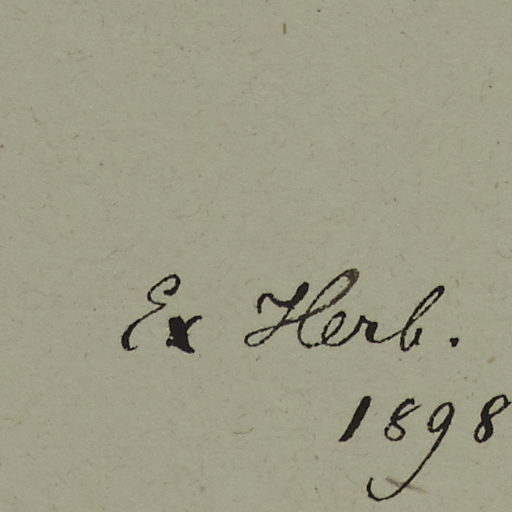 Ex Herb.
1898